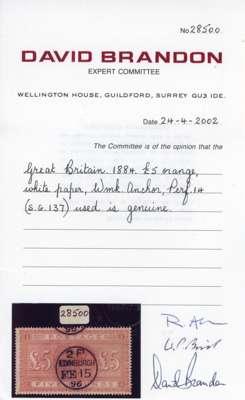 No 28500
DAVID BRANDON
EXPERT COMMITTEE
WELLINGTON HOUSE, GUILDFORD, SURREY GU3 1DE.
Date 24-4-2002
The Committee is of the opinion that the
Great Britain. 1884. £5 orange,
white paper, Wmk. Anchor, Perf. 14
(S.G. 137) used is genuine.
28500
POSTAGE
£5 £5
2 F
EDINBURGH
FE 15
96
FIVE
David Brandon